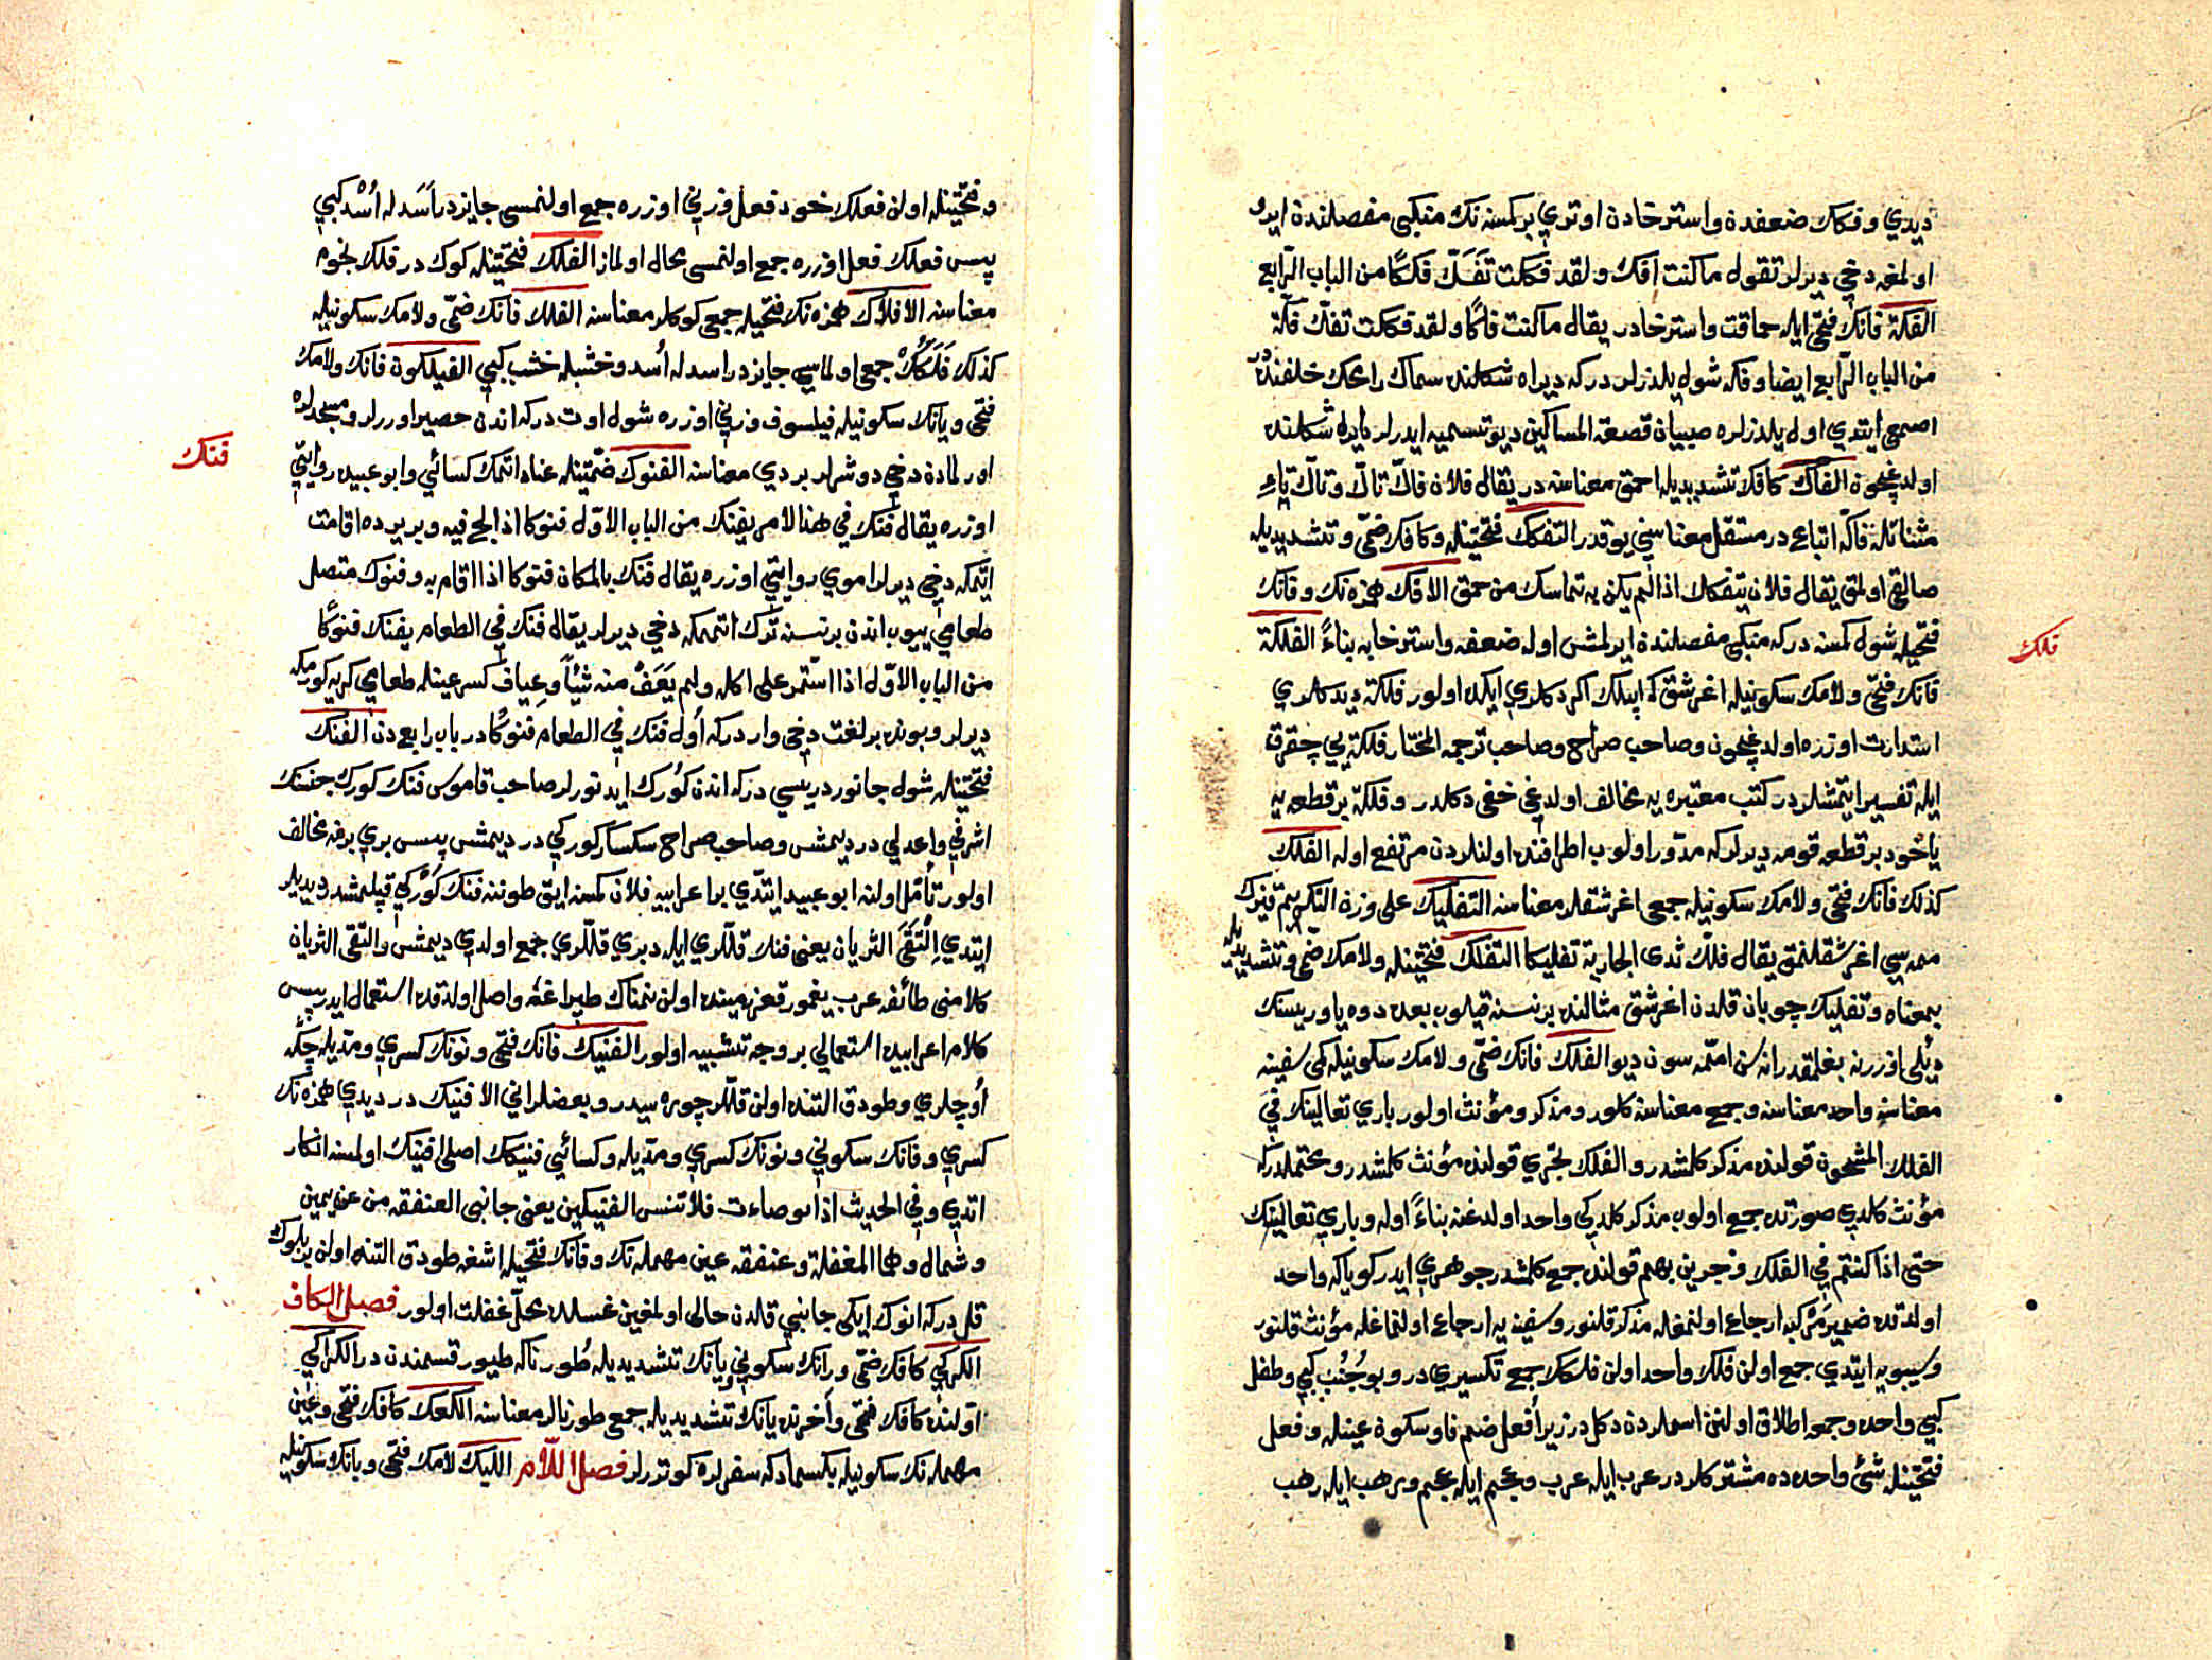 ديدي وفكك ضعفدة واسترخادن اوتري بر كمسنه نك منكبي مفصلندن ايرو
اولمغه دخي ديرلر تقول ما كنت افك ولقد فككت تَفَكّ فككًا من الباب الرّابع
الفكة فانك فتحي ايله حماقت واسترخادر يقال ما كنت فاكًا ولقد فككت تفكّ فكّة
من الباب الرّابع ايضا وفكه شول يلدزلردر كه ديراه شكلنده سماك رامحك خلفنده در
اصمعي ايتدي اول يلدزلره صبيان قصعة المساكين ديو تسميه ايدرلر دايره شكلنده
اولديغيچون الفاك كافك تشديديله احمق معناسنه در يقال فلان فاكّ تاكّ وتاكّ تاءِ
مثناتله فاكّه اتباع در مستقل معناسي يوقدر التفكك فتحتينله وكافك ضمّي وتشديديله
صالقي اولمق يقال فلان يتفكك اذا لم يكن به تماسك من حمق الافك همزه نك وفانك
فتحيله شول كمسنه در كه منكبي مفصلندن ايرلمش اوله ضعفه واسترخايه بناءً الفلكة
فانك فتحي ولامك سكونيله اغرشق كه ايپلك اكرد كلري ايكه اولور فلكة ديدكلري
استدارت اوزره اولديغيچون وصاحب صراح وصاحب ترجمه المختار فلكة يي چقرق
ايله تفسير ايتمشلر در كتب معتبره يه مخالف اولديغي خفي دكلدر وفلكة بر قطعه يه
ياخود بر قطعه قومه ديرلر كه مدوّر اولوب اطرافنده اولنلردن مرتفع اوله الفلك
كذلك فانك فتحي ولامك سكونيله جمعي اغرشقلر معناسنه التفليك على وزن التكريم قيزك
ممه سي اغرشقلنمق يقال فلّك ثدى الجارية تفليكا التفلك فتحتينله ولامك ضمّي وتشديديله
بمعناه وتفليك چوپان قلدن اغرشق مثالنده بر نسنه قيلوب بعده دوه ياوريسنك
ديلي اوزرنه بغلمقدر انه سن امّمه سون ديو الفلك فانك ضمّي ولامك سكونيله كمي سفينه
معناسنه واحد معناسنه وجمع معناسنه كلور ومذكر ومؤنث اولور باري تعالينك في
الفلك المشحون قولنده مذكر كلمشدر والفلك تجري قولنده مؤنث كلمشدر ومحتملدر كه
مؤنث كلدوكي صورتده جمع اولوب مذكر كلدوكي واحد اولدغنه بناءً اوله وباري تعالينك
حتى اذا كنتم في الفلك وجرين بهم قولنده جمع كلمشدر جوهري ايدر كوياكه واحد
اولدقده ضمير مركبه ارجاع اولنمغله مذكر قلنور وسفينه يه ارجاع اولنماغله مؤنث قلنور
وسيبويه ايتدي جمع اولن فلك واحد اولن فلكك جمع تكسيري در وبو جُنُب كبي وطفل
كبي واحده وجمعه اطلاق اولنن اسملردن دكل در زيرا فعل ضم فا وسكون عينله وفعل
فتحتينله شئ واحده ده مشترك كلر در عرب ايله عرب وعجم ايله عجم ورهب ايله رهب
فلك
و فتحتينله اولن فعلك خود فعل وزني اوزره جمع اولنمسى جايزدر اَسَد له اُسْد كبي
پس فعلك فعل اوزره جمع اولنمسى محال اولماز الفلك فتحتينله كوك در فلك نجوم
معناسنه الافلاك همزه نك فتحيله جمعي كوكلر معناسنه الفلك فانك ضمّي ولامك سكونيله
كذلك فَلَكك جمعي اولماسي جايزدر اسد له اُسد وخشبله خشب كبي الفيلكون فانك ولامك
فتحي ويانك سكونيله فيلسوف وزني اوزره شول اوت در كه اندن حصير اوررلر ومسجدلره
اورلمادن دخي دوشرلر بردي معناسنه الفنوك ضمّتينله عناد اتمك كسائي وابو عبيده روايتي
اوزره يقال فنك في هذا الامر يفنك من الباب الاوّل فنوكا اذا لج فيه وبر يرده اقامت
ايتمكه دخي ديرلر اموي روايتي اوزره يقال فنك بالمكان فنوكا اذا اقام به وفنوك متصل
طعامي ييوب اندن بر نسنه ترك اتممكه دخي ديرلر يقال فنك في الطعام يفنك فنوكًا
من الباب الاوّل اذا استمر على اكله ولم يَعَفْ منه شيئاً وعِياف كسر عينله طعامي كريه كورمكه
ديرلر وبونده بر لغت دخي واردر كه اول فنك في الطعام فنوكًا در باب رابعدن الفنك
فتحتينله شول جانور دريسي در كه اندن كورك ايدنورلر صاحب قاموس فنك كورك جنسنك
اشرفي واعدلي در ديمش وصاحب صراح سكسار كوركي در ديمش پس بري برينه مخالف
اولور تأمّل اولنه ابو عبيد ايتدي بر اعرابييه فلان كمسنه ايق طوننه فنك كوركي قپلمشدر ديديلر
ايتدي اِلْتَقَى الثريان يعني فنك قللري ايله دبري قللري جمع اولدي ديمش والتقى الثريان
كلامنى طائفه عرب يغمور قعر زمينده اولن نمناك طپراغه واصل اولدقده استعمال ايدر پس
كلام اعرابيده استعمالي بر وجه تشبيه اولور الفنيك فانك فتحي ونونك كسري ومدّيله چكه
اُوچلري وطوداق التنده اولن قللر چوره سيدر وبعضلر اني الافنيك در ديدي همزه نك
كسري وفانك سكوني ونونك كسري ومدّيله وكسائي فنيكك اصلي افنيك اولمسن انكار
اتدي وفي الحديث اذا توضاءت فلا تنس الفنيكين يعني جانبي العنفقه من عن يمين
وشمال وهما المغفلة وعنفقه عين مهمله نك وفانك فتحيله اشغه طودق التنده اولن بر بلوك
قل در كه انوك ايكى جانبي قلدن خالى اولمغين غسلده محلّ غفلت اولور فصل الكاف
الكركي كافك ضمّي ورانك سكوني ويانك تشديديله طورنا كه طيور قسمندن در الكراكي
اوّلنده كافك فتحي وآخرنده يانك تشديديله جمع طورنالر معناسنه الكعك كافك فتحي وعين
مهمله نك سكونيله بكسماد كه سفرلره كوتورلر فصل اللام الليك لامك فتحي وبانك سكونيله
فنك